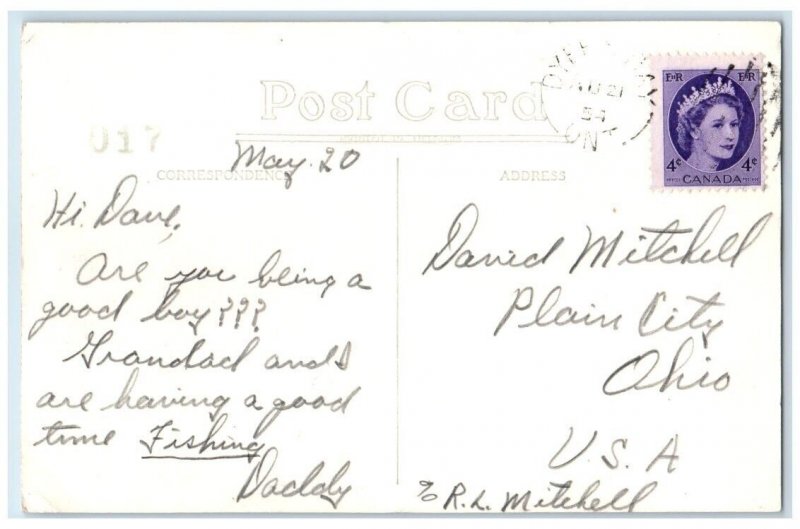 Post Card
017
May 20
CORRESPONDENCE
ADDRESS
21
54
ONT
E II R
E II R
4¢
4¢
CANADA
Hi Dave,
Are you being a
good boy???
Grandad and I
are having a good
time Fishing
Daddy
David Mitchell
Plain City
Ohio
U.S.A
c/o R.L. Mitchell